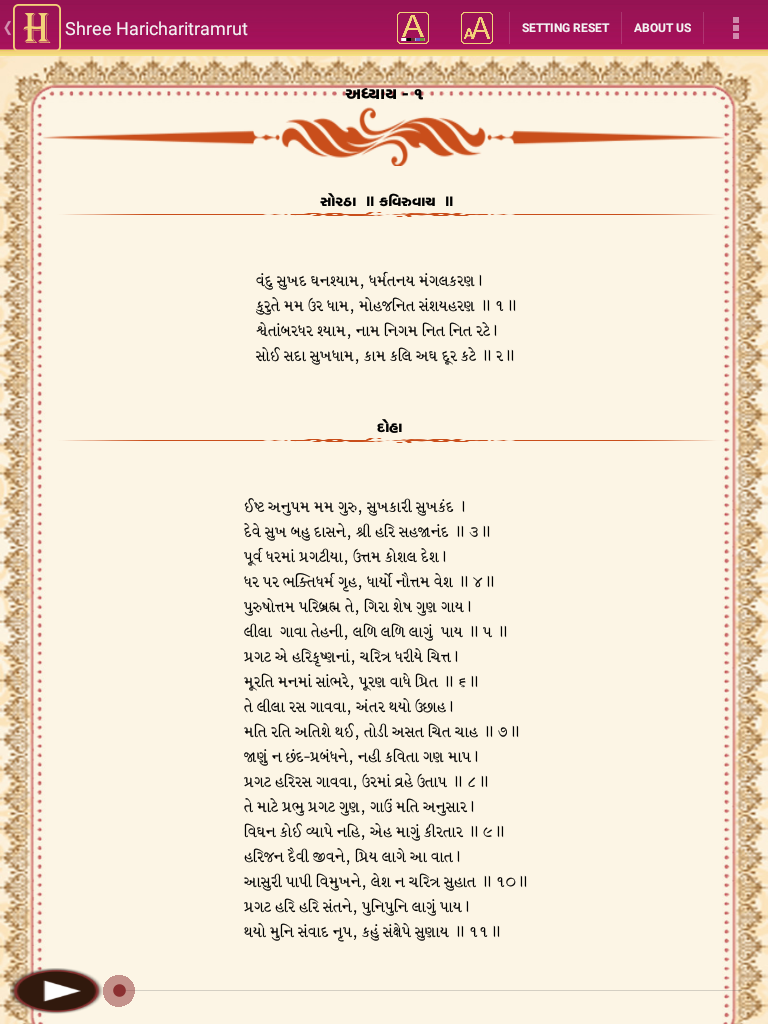 Shree Haricharitramrut
SETTING RESET
ABOUT US
અધ્યાય - ૧
સોરઠા ॥ કવિરુવાચ ॥
વંદુ સુખદ ઘનશ્યામ, ધર્મતનય મંગલકરણ।
કુરુતે મમ ઉર ધામ, મોહજનિત સંશયહરણ ॥ ૧ ॥
શ્વેતાંબરધર શ્યામ, નામ નિગમ નિત નિત રટે।
સોઈ સદા સુખધામ, કામ કલિ અઘ દૂર કટે ॥ ૨॥
દોહા
ઈષ્ટ અનુપમ મમ ગુરુ, સુખકારી સુખકંદ ।
દેવે સુખ બહુ દાસને, શ્રી હરિ સહજાનંદ ॥ ૩॥
પૂર્વ ધરમાં પ્રગટીયા, ઉત્તમ કોશલ દેશ।
ધર પર ભક્તિધર્મ ગૃહ, ધાર્યો નૌત્તમ વેશ ॥ ૪॥
પુરુષોત્તમ પરિબ્રહ્મ તે, ગિરા શેષ ગુણ ગાય।
લીલા ગાવા તેહની, લળિ લળિ લાગું પાય ॥ ૫ ॥
પ્રગટ એ હરિકૃષ્ણનાં, ચરિત્ર ધરીયે ચિત્ત।
મૂરતિ મનમાં સાંભરે, પૂરણ વાધે પ્રિત ॥ ૬॥
તે લીલા રસ ગાવવા, અંતર થયો ઉછાહ।
મતિ રતિ અતિશે થઈ, તોડી અસત ચિત ચાહ ॥ ૭॥
જાણું ન છંદ-પ્રબંધને, નહી કવિતા ગણ માપ।
પ્રગટ હરિરસ ગાવવા, ઉરમાં વ્રહે ઉતાપ ॥ ૮॥
તે માટે પ્રભુ પ્રગટ ગુણ, ગાઉં મતિ અનુસાર।
વિઘન કોઈ વ્યાપે નહિ, એહ માગું કીરતાર ॥ ૯॥
હરિજન દૈવી જીવને, પ્રિય લાગે આ વાત।
આસુરી પાપી વિમુખને, લેશ ન ચરિત્ર સુહાત ॥ ૧૦॥
પ્રગટ હરિ હરિ સંતને, પુનિપુનિ લાગું પાય।
થયો મુનિ સંવાદ નૃપ, કહું સંક્ષેપે સુણાય ॥ ૧૧॥